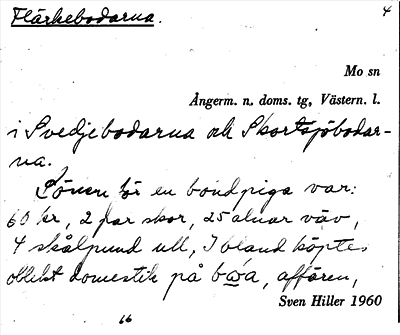 Flärkebodarna.
4
Mo sn
Ångerm. n. doms. tg, Västern. l.
i Svedjebodarna och Skortsjöbodar-
na.
Lönen för en bondpiga var:
60 kr, 2 par skor, 25 alnar väv,
4 skålpund ull, Ibland köptes
oblekt domestik på affären,
Sven Hiller 1960
66